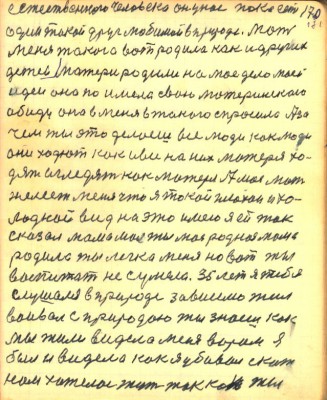 естественного человека он у нас пока ест 170
один такой друг любимой в природе. Мат 171
меня такога вот родила как и других
детей. Матери родили на мое дело моей
идеи она по имела свою материнского
обиду она в меня в такого спросила А за
чем ты это делоеш все люди как люди
они ходют как и вси на них матеря хо
дят и гледят как матеря А моя мат
желеет меня что я такой плохои и хо
лодной вид на это имею я ей так
сказал мама моя ты моя родная мат
родила ты легка меня но вот ты
воспитат не сумела. 35 лет я тебя
слушался в природе зависимо жил
воввал с природаю ты знаеш как
мы жили видела меня вором я
был и видела как я убивал скат
нам хотелос жит так как ты